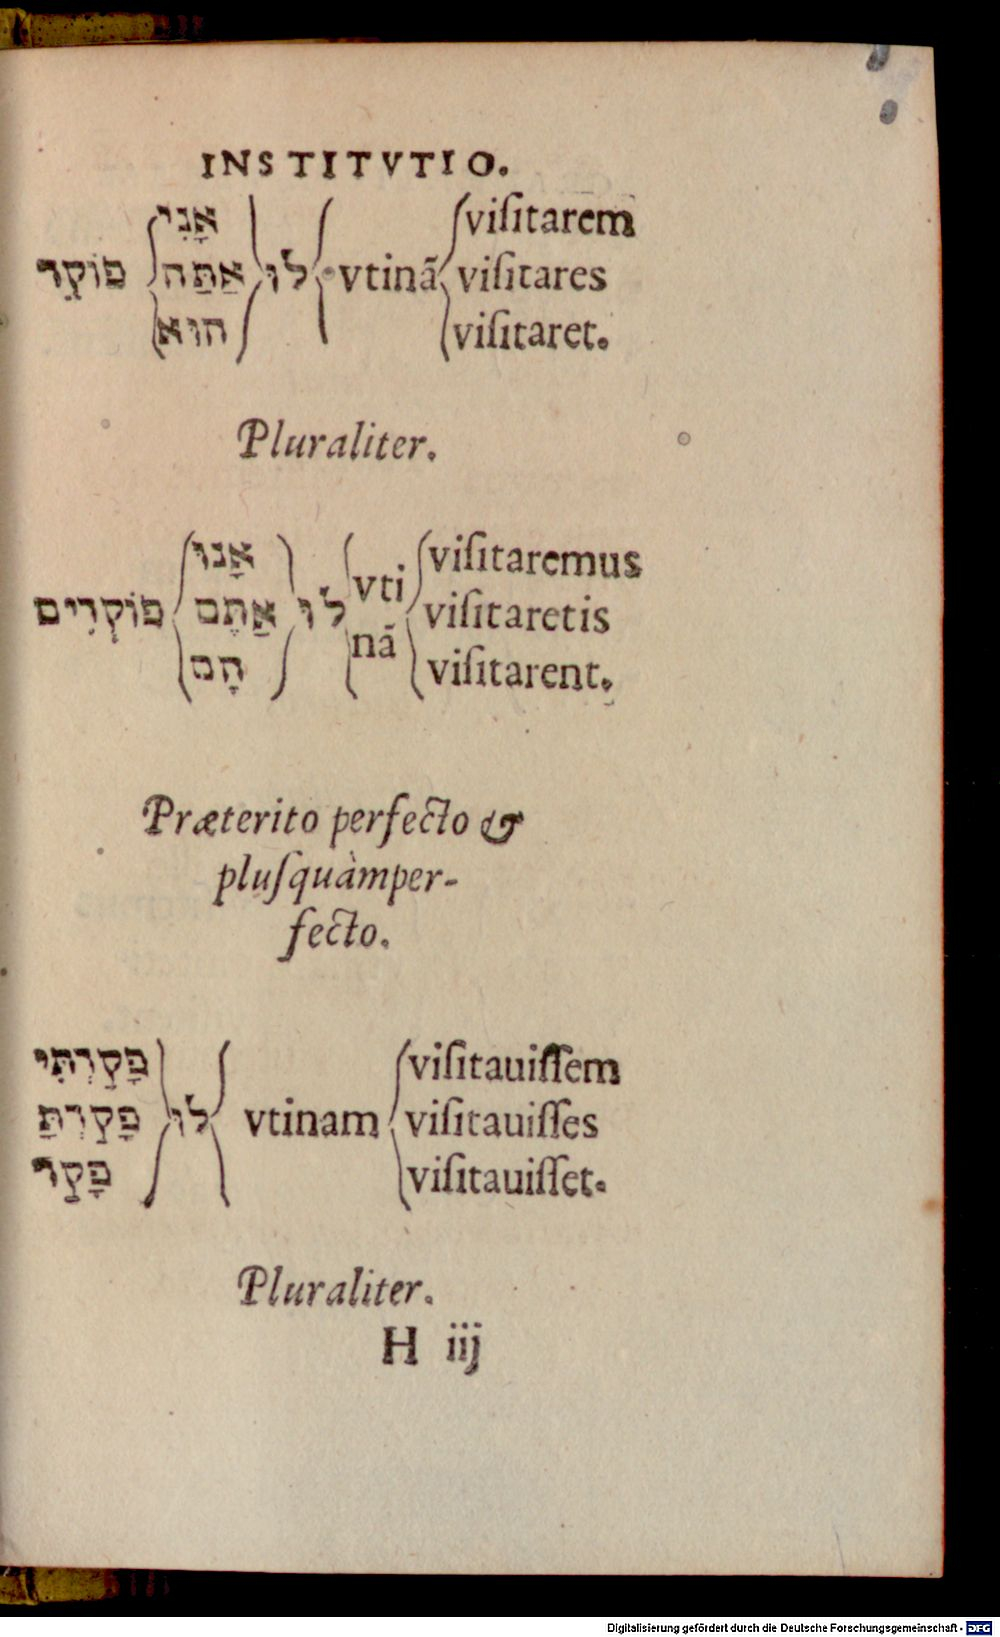 INSTITVTIO.
אָנִי viſitarem
פוֹקֵד אַתָּה לוּ vtinã viſitares
הוּא viſitaret.
Pluraliter.
אָנוּ vti viſitaremus
פוֹקְדִים אַתֶּם לוּ viſitaretis
הָם nã viſitarent.
Præterito perfecto &
pluſquàmper-
fecto.
פָּקַדְתִּי viſitauiſſem
פָּקַדְתַּ לוּ vtinam viſitauiſſes
פָּקַד viſitauiſſet.
Pluraliter.
H iij
Digitalisierung gefördert durch die Deutsche Forschungsgemeinschaft - DFG